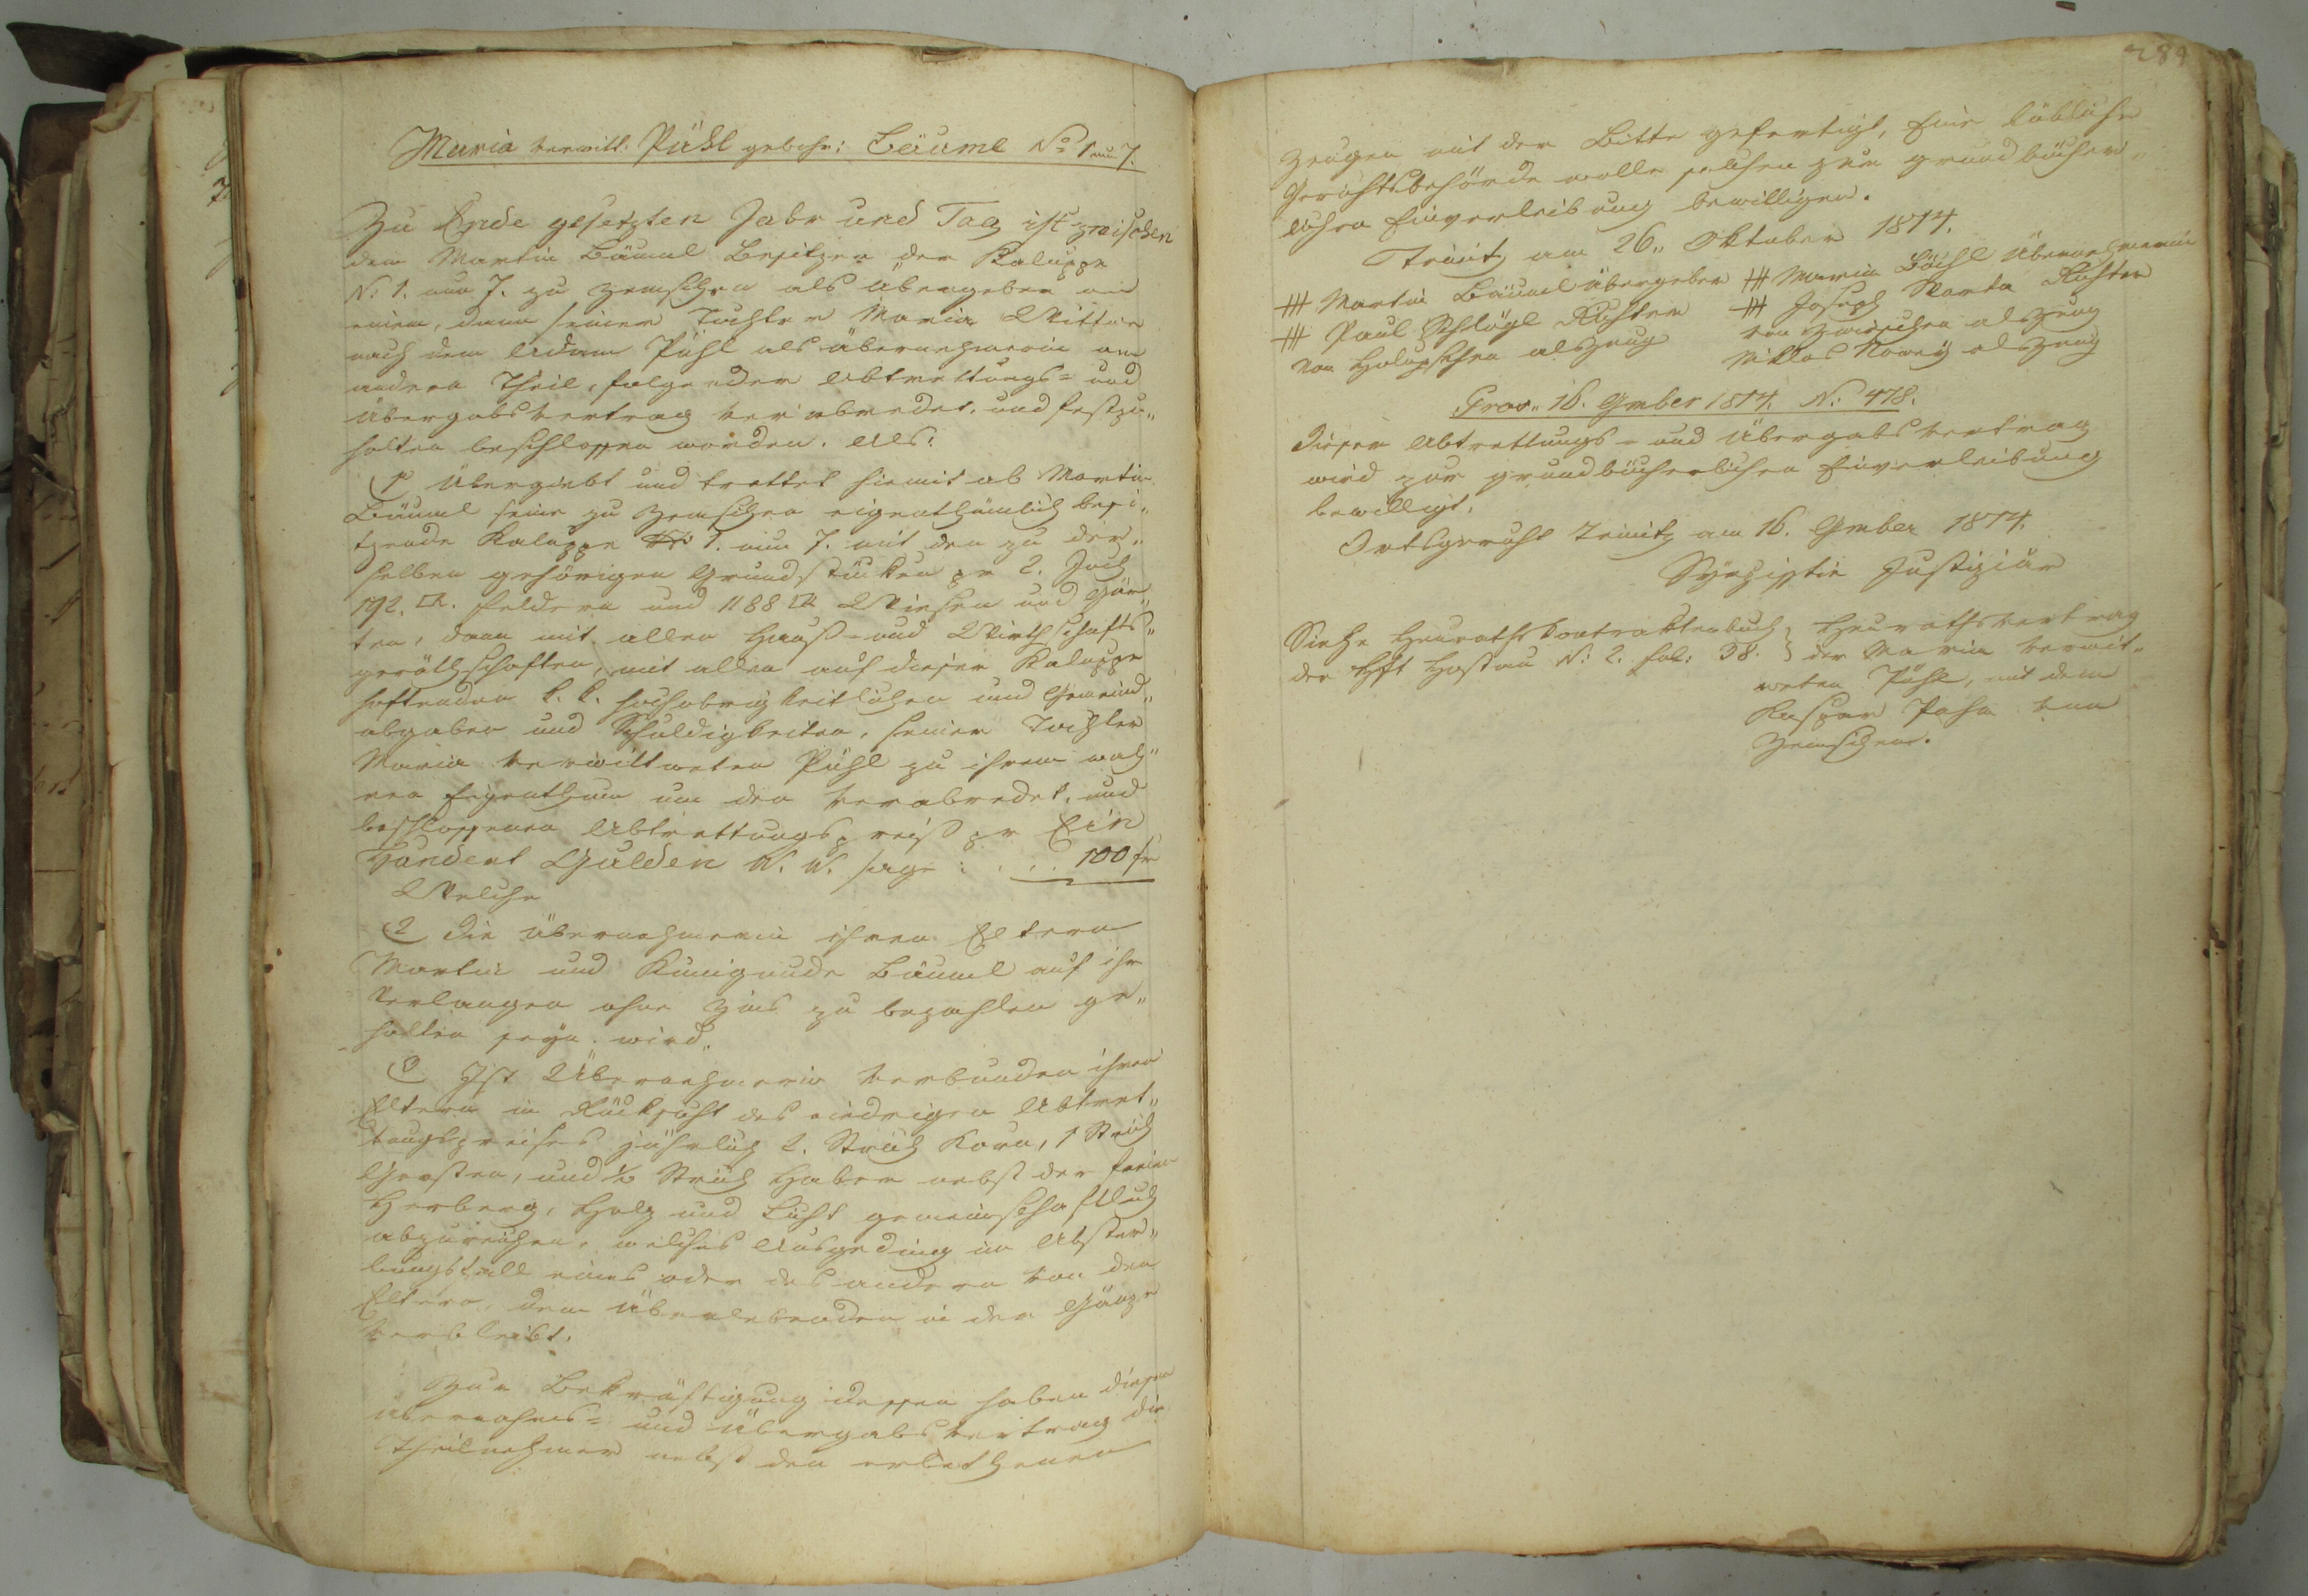 Maria verwitt: Pühl gebohr: Bäuml No 1 nun 7.
Zu Ende gesetzten Jahr und Tag ist zwischen
dem Martin Bäuml Besitzer der Kaluppe
N: 1. nun 7. zu Zemschen als Übergeber an
einem, dann seiner Tochter Maria Wittwe
nach dem Adam Pühl als Übernehmerin am
andern Theil, folgender Abtrettungs= und
Übergabsvertrag verabredet, und festzu„
halten beschlossen worden. Als:
1 Übergiebt und trettet hiemit ab Martin
Bäuml seine zu Zemschen eigenthümlich besi„
tzende Kaluppe No 1. nun 7. mit den zu der„
selben gehörigen Grundstücken pr 2. Joch
192. □R. Feldern und 1188 □R Wiesen und Gär„
ten, dann mit allen Hauß- und Wirthschafts„
geräthschaften, mit allen auf dieser Kaluppe
haftenden k. k. hochobrigkeitlichen und Gemeind„
abgaben und Schuldigkeiten, seiner Tochter
Maria verwittweten Pühl zu ihrem wah„
ren Eigenthum um den verabredet, und
beschlossenen Abtrettungspreiß pr Ein
Hundert Gulden W. W. sage : . . . . 100 fr
Welche
2 die Übernehmerin ihren Eltern
Martin und Kunigunde Bäuml auf ihr
Verlangen ohne Zins zu bezahlen ge„
halten seyn wird.
3 Ist Übernehmerin verbunden ihren
Eltern in Rücksicht des niedrigen Abtret„
tungspreises jährlich 2. Strich Korn, 1 Strich
Gersten, und ½ Strich Haber nebst der freien
Herberg, Holz und Licht gemeinschaftlich
abzureichen, welches Ausgeding im Abster„
bungsfall eines oder des andern von den
Eltern, dem Überlebenden in der Gänze
verbleibt.
Zur Bekräftigung dessen haben diesen
Übernahms= und Übergabsvertrag die
Theilnehmer nebst den erbethenen
289
Zeugen mit der Bitte gefertigt, Eine löbliche
Gerichtsbehörde wolle solchen zur grundbücher„
lichen Einverleibung bewilligen.
Trinitz am 26„ Oktober 1814.
+++ Martin Bäuml Übergeber +++ Maria Pühl Übernehmerin
+++ Paul Schlögl Richter +++ Joseph Warta Richter
von Holupschen als Zeug von Zwirschen als Zeug
Niklas Nowey als Zeug
Praes„ 16. 9mber 1814. N: 478.
Dieser Abtrettungs= und Übergabsvertrag
wird zur grundbücherlichen Einverleibung
bewilligt.
Ortsgericht Trinitz am 16. 9mber 1814.
Justiziär
Siehe Heuraths Kontraktenbuch } Heurathsvertrag
der Hft Hostau N: 2. fol: 38. } der Maria verwit„
weten Pühl, mit dem
Kaspar Pohn von
Zemschen.